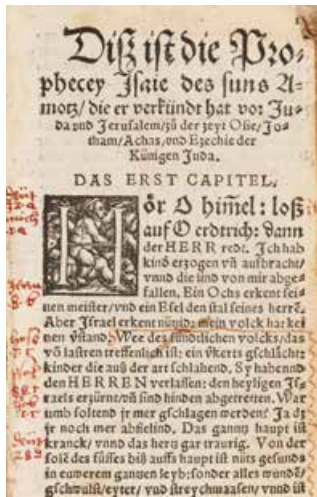 Diß ist die Pro-
phecey Isaie des suns A-
motz/ die er verkündt hat vor Ju-
da vnd Jerusalem/ zů der zeyt Osie/ Jo-
tham/ Achas/ vnd Ezechie der
Künigen Juda.
DAS ERST CAPITEL.
Hör O him̃el: loß
auf O erdtrich: dann
der HERR redt. Ich hab
kind erzogen vñ aufbracht/
vnnd die sind von mir abge-
fallen. Ein Ochs erkent sei-
nen meister/ vnd ein Esel den stal seines herrẽ.
Aber Israel erkent mein volck hat kei
nen ṽstand. Wee des sündtlichen volcks/ das
võ lastren treffenlich ist: ein ṽkerts gschlächt:
kinder die auß der art schlahend. Sy habennd
den HERREN verlassen: den heyligen Js-
raels erzürnt/ vñ sind hinden abgetretten. War
umb soltend jr mer gschlagen werden? Ja dz
jr noch mer abfielind. Das gantz haupt ist
kranck/ vnnd das hertz gar traurig. Von der
sole des fůsses biß auffs haupt ist nüts gesunds
in euwerem gantzen leyb: sonder alles wundẽ/
gschwulst/ eyter/ vnd streychmasen/ vnnd ist